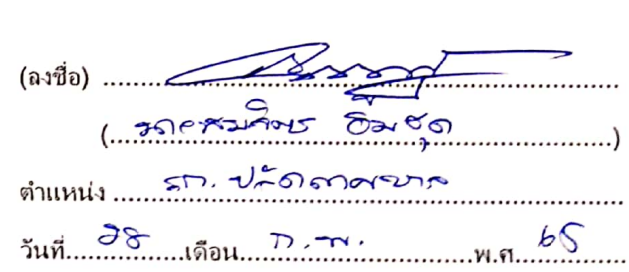 (ลงชื่อ)
(นายสมคิด อิ่มชุด)
ตำแหน่ง รก. ปลัดเทศบาล
วันที่ 28 เดือน ก.พ. พ.ศ. 65